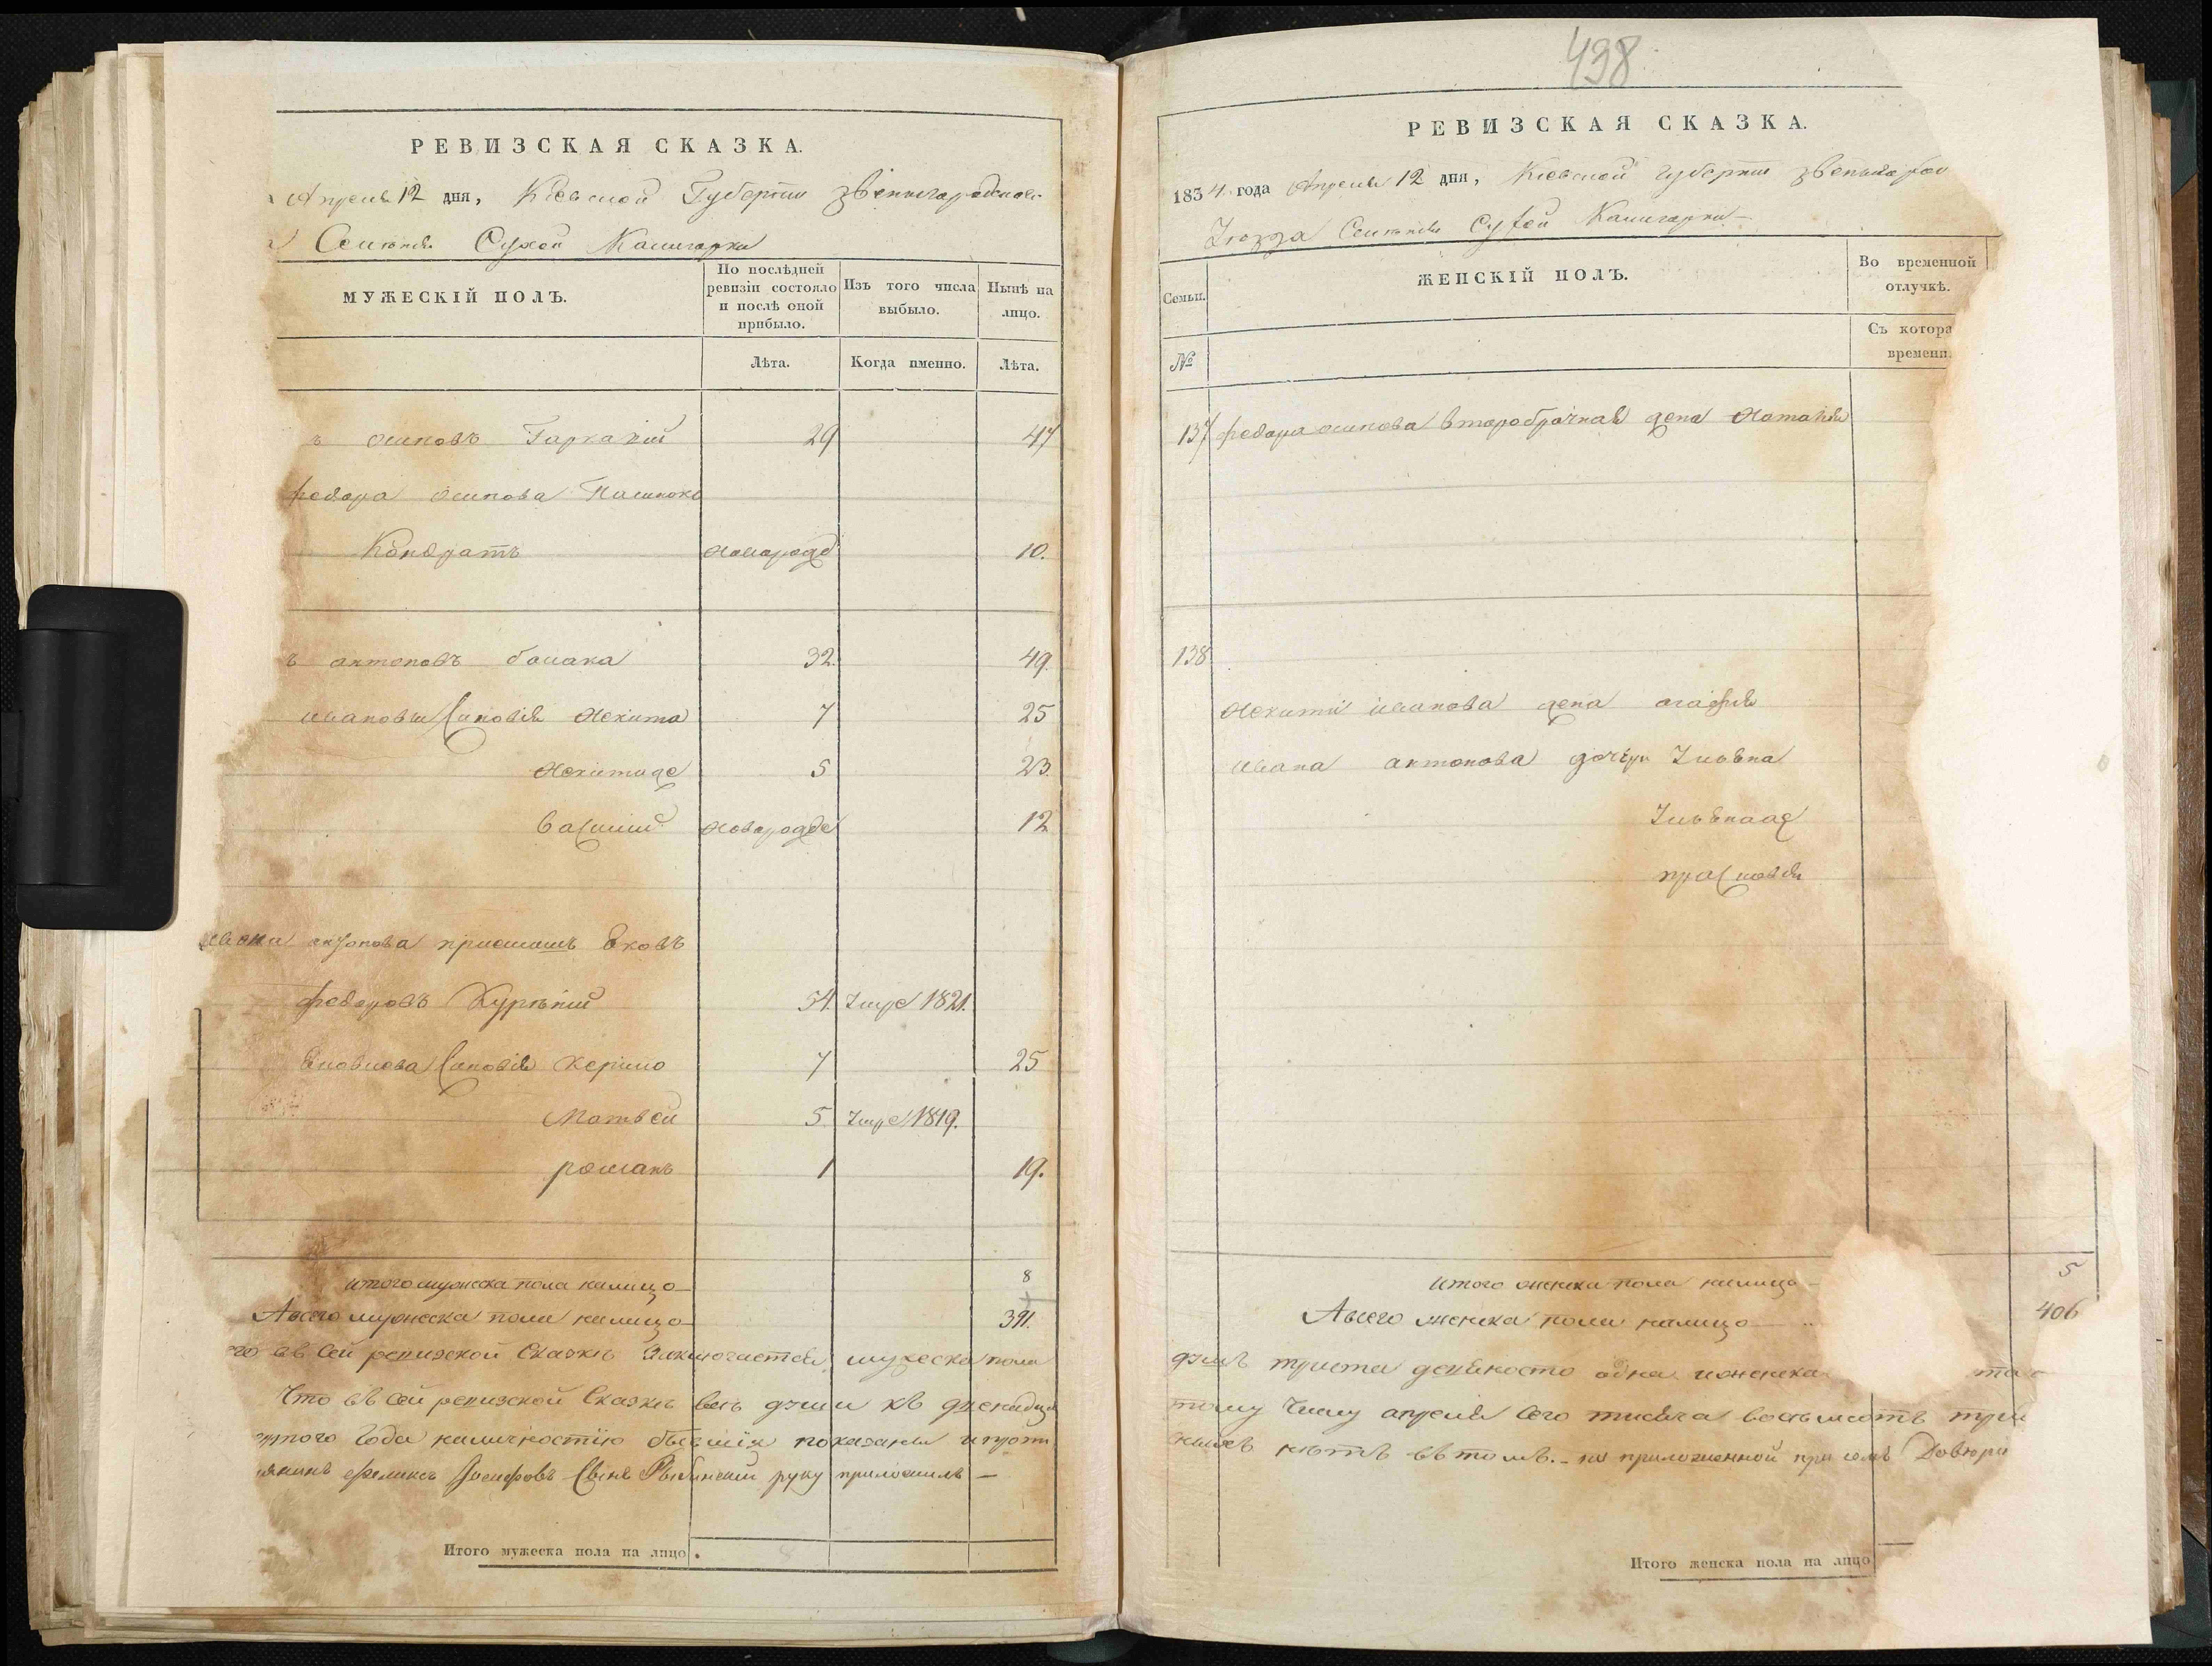 РЕВИЗСКАЯ СКАЗКА.
Апреля 12 дня, Кіевской Губерніи Звенигородской
Селенія Сухой Калигорки
МУЖЕСКІЙ ПОЛЪ.
По послѣдней ревизіи состояло и послѣ оной прибыло.
Изъ того числа выбыло.
Нынѣ на лицо.
Лѣта.
Когда именно.
Лѣта.
осиповъ 29 47
федора осипова
Кондратъ новорожд 10.
антоновъ 32. 49.
ивановы Сыновія Никита 7 25
Никитаже 5 23.
василий новорожде 12
ивана антонова приемышъ Яковъ
федоровъ 54. Умре 1821.
Яковлева Сыновія 7 25
Матвей 5 Умре 1819.
романъ 1 19.
итого мужеска пола налицо 8
А всего мужеска пола налицо 391.
го въ сей ревизской Сказке Заключается мужеска пола
Что въ сей ревизской Сказке весь души къ двенадца
того года наличностію бывшія показаны и проти
Феликсъ Іосифовъ Сынъ Рыбинский руку приложилъ —
Итого мужеска пола на лицо.
438
РЕВИЗСКАЯ СКАЗКА.
1834 года Апреля 12 дня, Кіевской губерніи Звенигород
Уезда Селенія Сухой Калигорки
Семьи.
ЖЕНСКІЙ ПОЛЪ.
Во временной отлучкѣ.
№
Съ котора времени.
137 федора осипова второбрачная жена Наталия
138
Никиты иванова жена агафия
ивана антонова дочери
прасковия
итого женска пола налицо 5
А всего женска пола налицо 406
душъ триста девяносто одна и женска
тому числу апреля сего тысяча восьмсотъ три
нетъ въ томъ. – по приложенной при семъ Довери
Итого женска пола на лицо